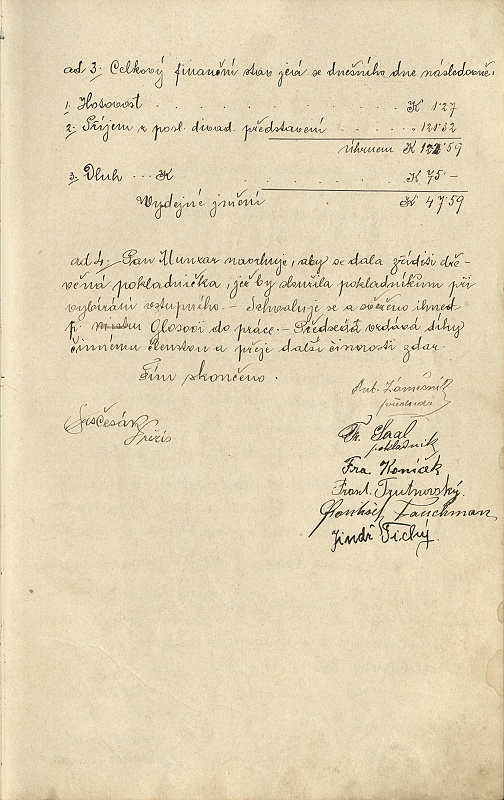 ad 3. Celkový finanční stav jeví se dnešního dne následovně:
1. Hotovost . . . . . . . K 1·27
2. Příjem z posl. divad. představení . . . . „ 121·32
Úhrnem K 122·59
3. Dluh . . . K . . . . . K 75·—
Výdejné jmění K 47·59
ad 4. Pan Munzar navrhuje, aby se dala zříditi dře-
věná pokladnička, jež by sloužila pokladníkum při
vybírání vstupního. — Schvaluje se a svěřeno ihned
p. Glosovi do práce. — Předseda vzdává díky
činnému členstvu a přeje další činnosti zdar.
Tím skončeno.
Ant. Zámečník
předseda
Fr. Saal
pokladník
Fra. Koníček
Frant. Trutnovský.
Fauchman
Jindř Tichý.